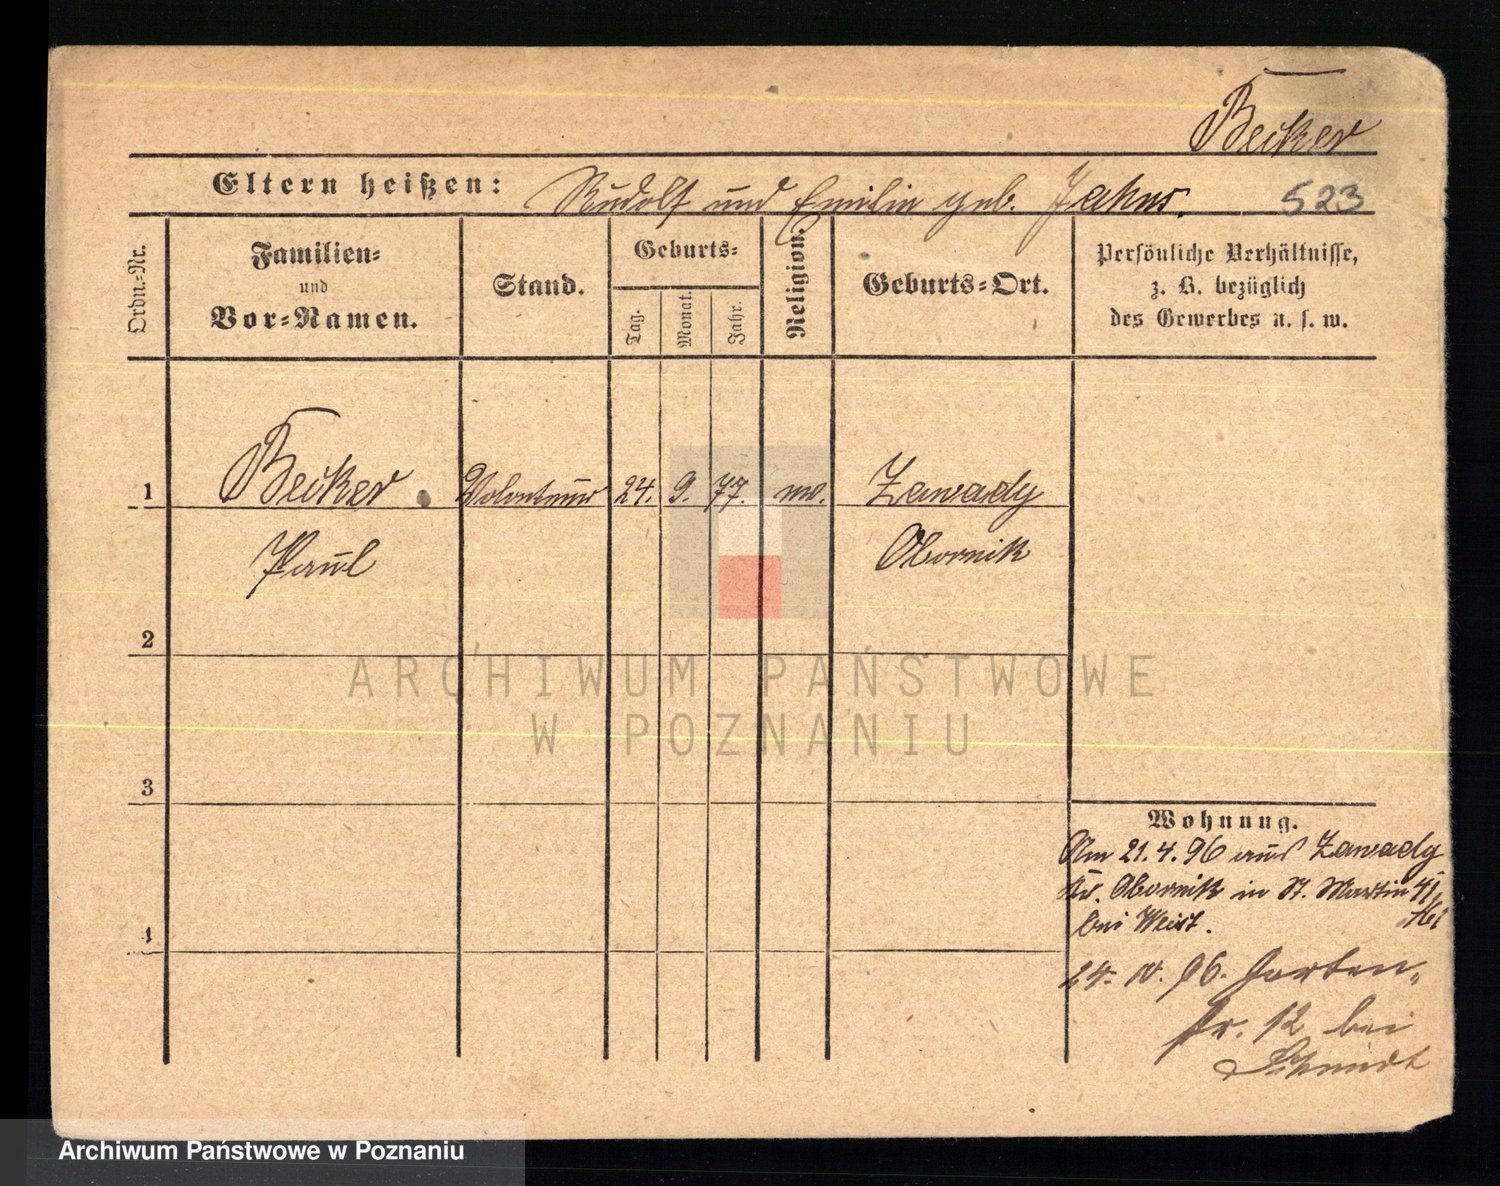 Becker
Eltern heißen: Rudolf und Emilie geb. Jahns. 523
Ordn.=Nr.
Familien=
und
Vor=Namen.
Stand.
Geburts=
Tag.
Monat.
Jahr.
Religion.
Geburts=Ort.
Persönliche Verhältnisse,
z. B. bezüglich
des Gewerbes u. s. w.
1 Becker Volontair 24. 9. 77. Zawady
Paul Obornik
2
3
4
ARCHIWUM PAŃSTWOWE
W POZNANIU
Wohnung.
Am 21.4.96 aus Zawady
Kr. Obornik in St. Martin 41
bei Weist.
24. 96. Garten=
str. 12 bei
Schmidt
Archiwum Państwowe w Poznaniu